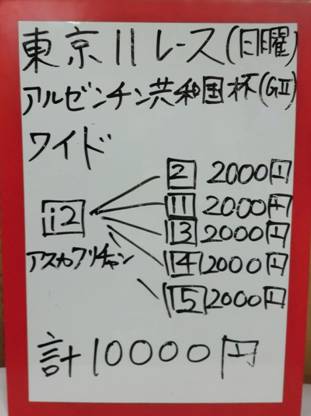 東京11レース(日曜)
アルゼンチン共和国杯(GII)
ワイド
2 2000円
11 2000円
12
13 2000円
アスカクリチャン
14 2000円
15 2000円
計10000円